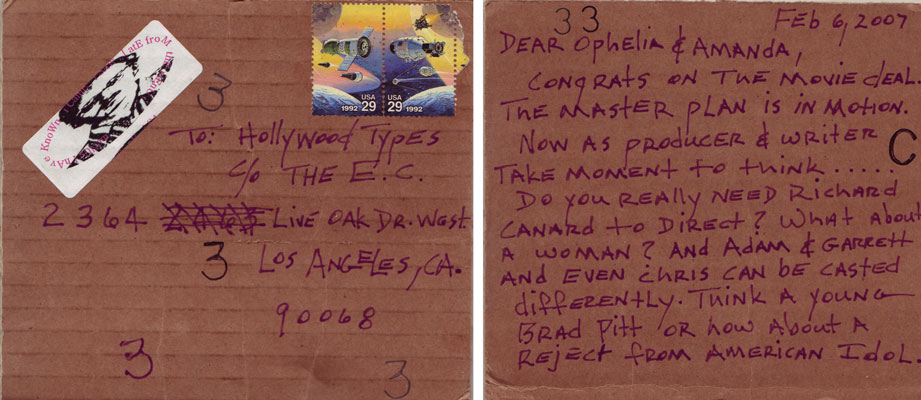 3
KnoW
atE froM
USA
29
1992
USA
29
1992
To: Hollywood Types
c/o THE E.C.
2364 Live Oak Dr. West
3
Los Angeles, CA.
90068
3
3
33
Feb 6, 2007
Dear Ophelia & Amanda,
Congrats on the movie deal.
The master plan is in motion.
Now as producer & writer
C
take moment to think.....
Do you really need Richard
Canard to direct? What about
a woman? And Adam & Garrett
and even Chris can be casted
differently. Think a young
Brad Pitt or how about a
reject from American Idol.